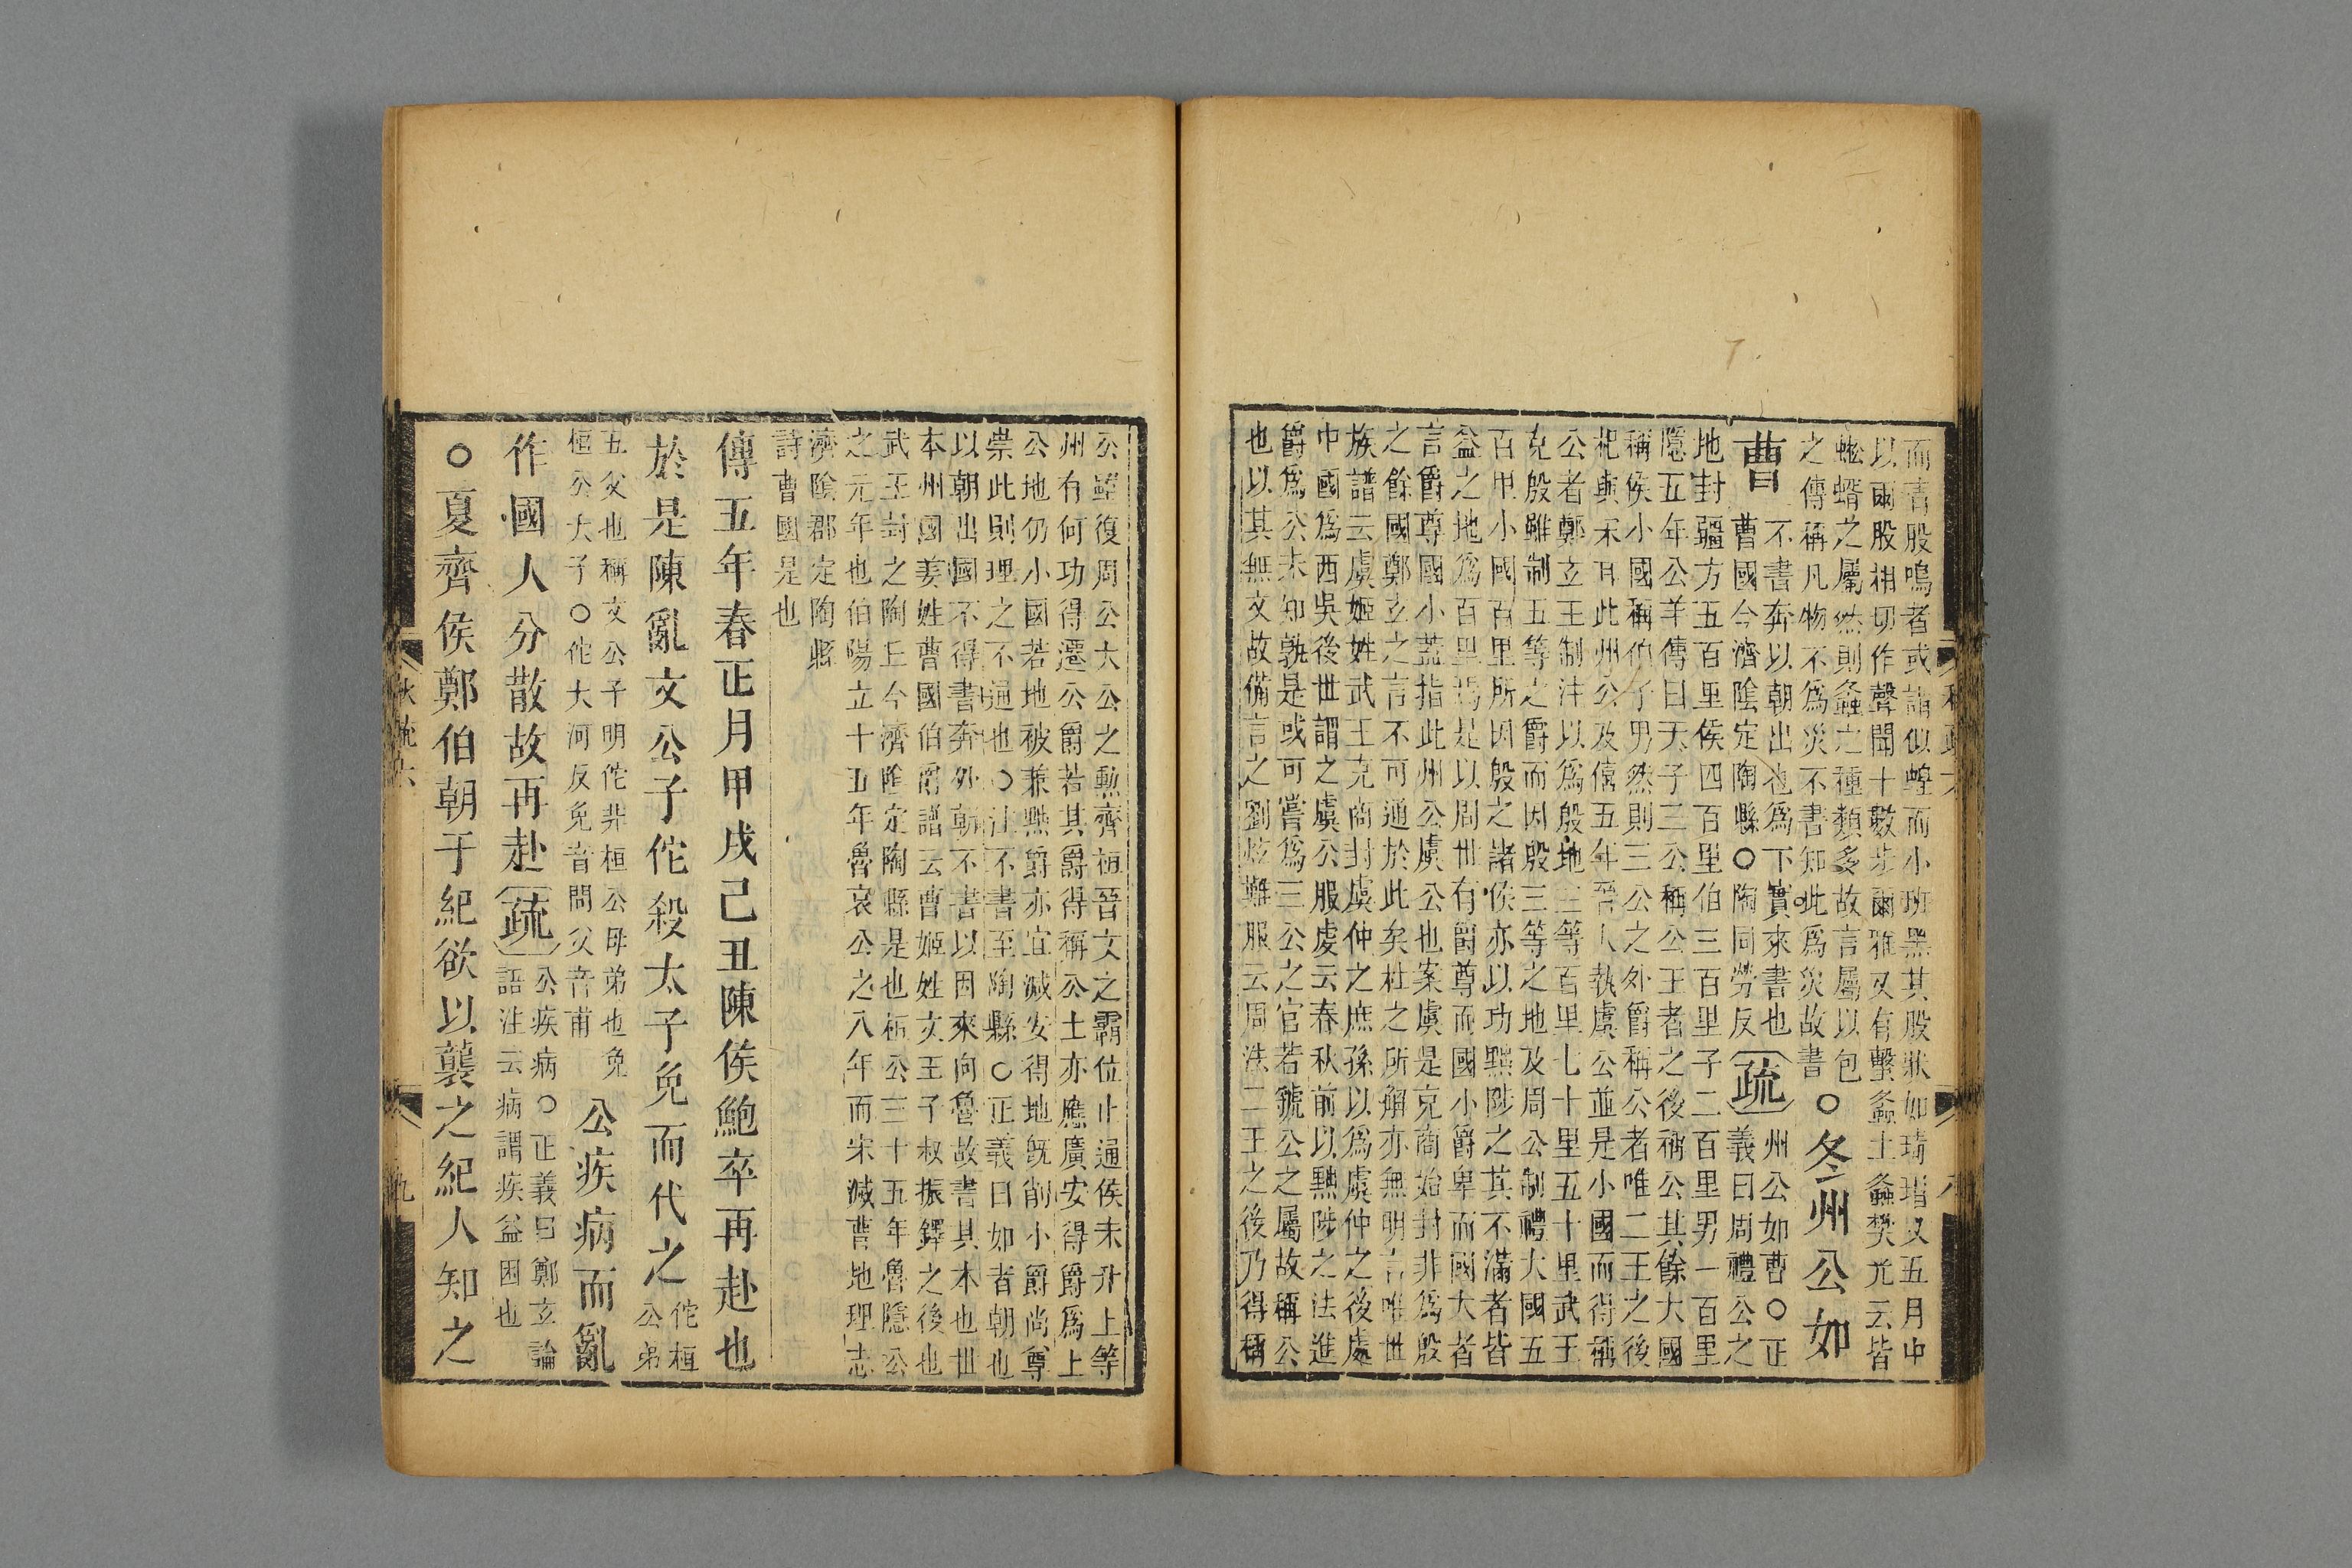 而青股鳴者或謂似蝗而小班黑其股狀如瑇瑁又五月中
以兩股相切作聲聞十數步爾雅又有蟿螽土螽樊光云皆
蚣蝑之屬然則螽之種類多故言屬以包
之傳稱凡物不爲災不書知此爲災故書○冬州公如
曹
不書奔以朝出也爲下實來書也
曹國今濟陰定陶縣○陶同勞反
疏
州公如曹○正
義曰周禮公之
地封疆方五百里侯四百里伯三百里子二百里男一百里
隱五年公羊傳曰天子三公稱公王者之後稱公其餘大國
稱侯小國稱伯子男然則三公之外爵稱公者唯二王之後
杞與宋耳此州公及僖五年晉人執虞公並是小國而得稱
公者鄭玄王制注以爲殷地三等百里七十里五十里武王
克殷雖制五等之爵而因殷三等之地及周公制禮大國五
百里小國百里所因殷之諸侯亦以功黜陟之其不滿者皆
益之地爲百里焉是以周世有爵尊而國小爵卑而國大者
言爵尊國小蓋指此州公虞公也案虞是克商始封非爲殷
之餘國鄭玄之言不可通於此矣杜之所解亦無明言唯世
族譜云虞姬姓武王克商封虞仲之庶孫以爲虞仲之後處
中國爲西吳後世謂之虞公服虔云春秋前以黜陟之法進
爵爲公未知孰是或可嘗爲三公之官若虢公之屬故稱公
也以其無文故備言之劉炫難服云周法二王之後乃得稱
公雖復周公大公之勳齊桓晉文之霸位止通侯未升上等
州有何功得遷公爵若其爵得稱公土亦應廣安得爵爲上
公地仍小國若地被兼黜爵亦宜減安得地既削小爵尚尊
崇此則理之不通也○注不書至陶縣○正義曰如者朝也
以朝出國不得書奔外朝不書以因來向魯故書其本也世
本州國姜姓曹國伯爵譜云曹姬姓文王子叔振鐸之後也
武王封之陶丘今濟陰定陶縣是也桓公三十五年魯隱公
之元年也伯陽立十五年魯哀公之八年而宋滅曹地理志
濟陰郡定陶縣
詩曹國是也
傳五年春正月甲戌己丑陳侯鮑卒再赴也
於是陳亂文公子佗殺太子免而代之
佗桓
公弟
五父也稱文公子明佗非桓公母弟也免
桓公大子○佗大河反免音問父音甫
公疾病而亂
作國人分散故再赴
疏
公疾病○正義曰鄭玄論
語注云病謂疾益困也
○夏齊侯鄭伯朝于紀欲以襲之紀人知之
秋疏六
九